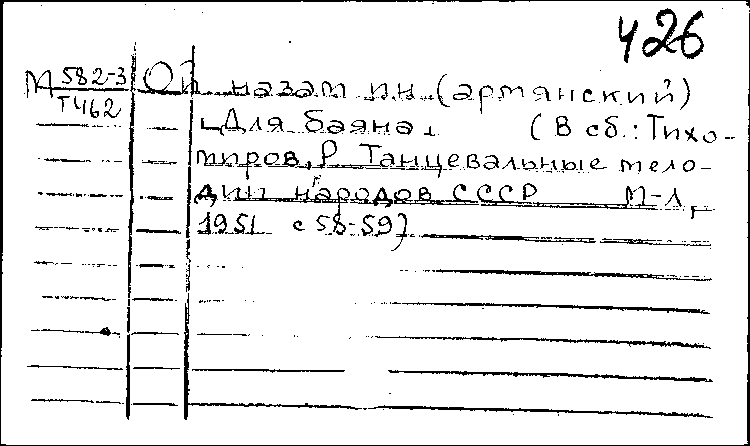 426
М 582-3 Ой назат им. (армянский)
Т462 [Для баяна] (В сб.: Тихо-
миров, Р. Танцевальные мело-
дии народов СССР М-Л,
1951 с 58-59)